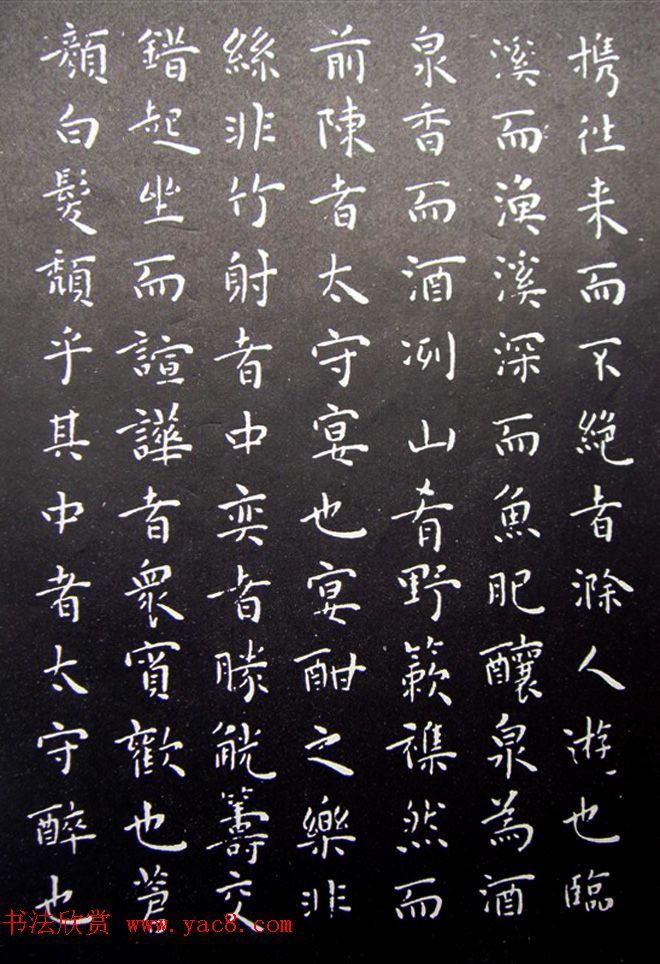 携往来而不絶者滁人游也臨
溪而漁溪深而魚肥釀泉為酒
泉香而酒冽山肴野簌襍然而
前陳者太守宴也宴酣之樂非
絲非竹射者中奕者勝觥籌交
錯起坐而諠譁者衆賓歡也蒼
顏白髮頹乎其中者太守醉也
书法欣赏 www.yac8.com